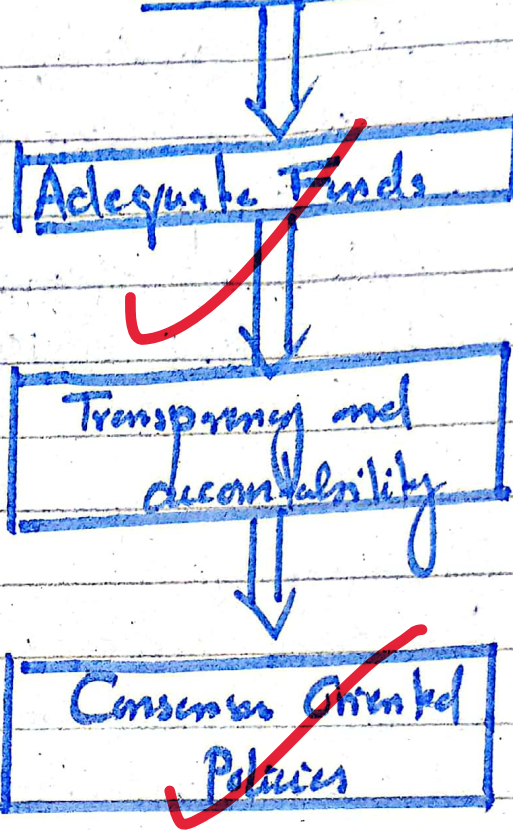 Adequate Funds
Transparency and
accountability
Consensus Oriented
Policies